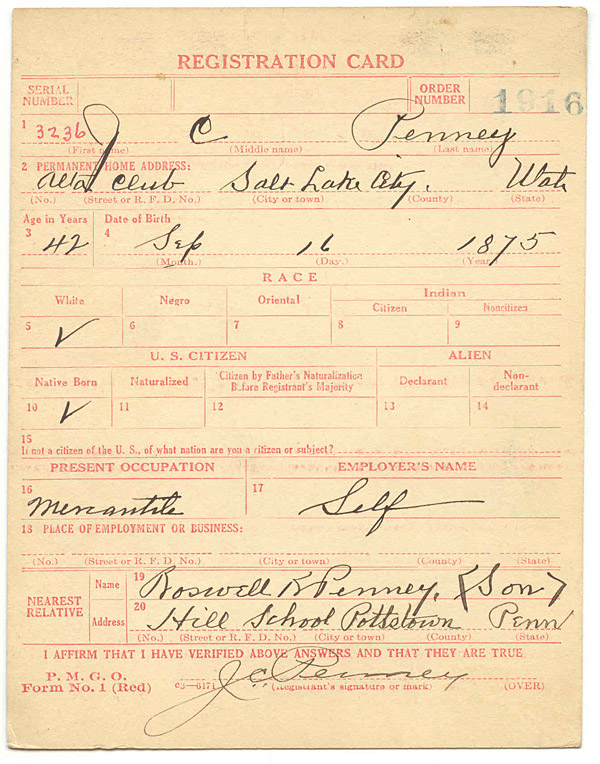 REGISTRATION CARD
SERIAL NUMBER
ORDER NUMBER
1916
1 3236 J C Penney
(First name) (Middle name) (Last name)
2 PERMANENT HOME ADDRESS:
Alta Club Salt Lake City. Utah
(No.) (Street or R. F. D. No.) (City or town) (County) (State)
Age in Years Date of Birth
3 42 4 Sep 16 1875
(Month.) (Day.) (Year
RACE
White Negro Oriental Indian
Citizen Noncitizen
5 ✓ 6 7 8 9
U. S. CITIZEN ALIEN
Native Born Naturalized Citizen by Father's Naturalization Before Registrant's Majority Declarant Non-declarant
10 ✓ 11 12 13 14
15
If not a citizen of the U. S., of what nation are you a citizen or subject?
PRESENT OCCUPATION EMPLOYER'S NAME
16 Mercantile 17 Self
18 PLACE OF EMPLOYMENT OR BUSINESS:
(No.) (Street or R. F. D. No.) (City or town) (County) (State)
NEAREST RELATIVE
Name 19 Roswell K Penney. (Son)
Address 20 Hill School Pottstown Penn
(No.) (Street or R. F. D. No.) (City or town) (County) (State)
I AFFIRM THAT I HAVE VERIFIED ABOVE ANSWERS AND THAT THEY ARE TRUE
P. M. G. O.
Form No. 1 (Red) c3—6171 J.C. Penney
(Registrant's signature or mark) (OVER)